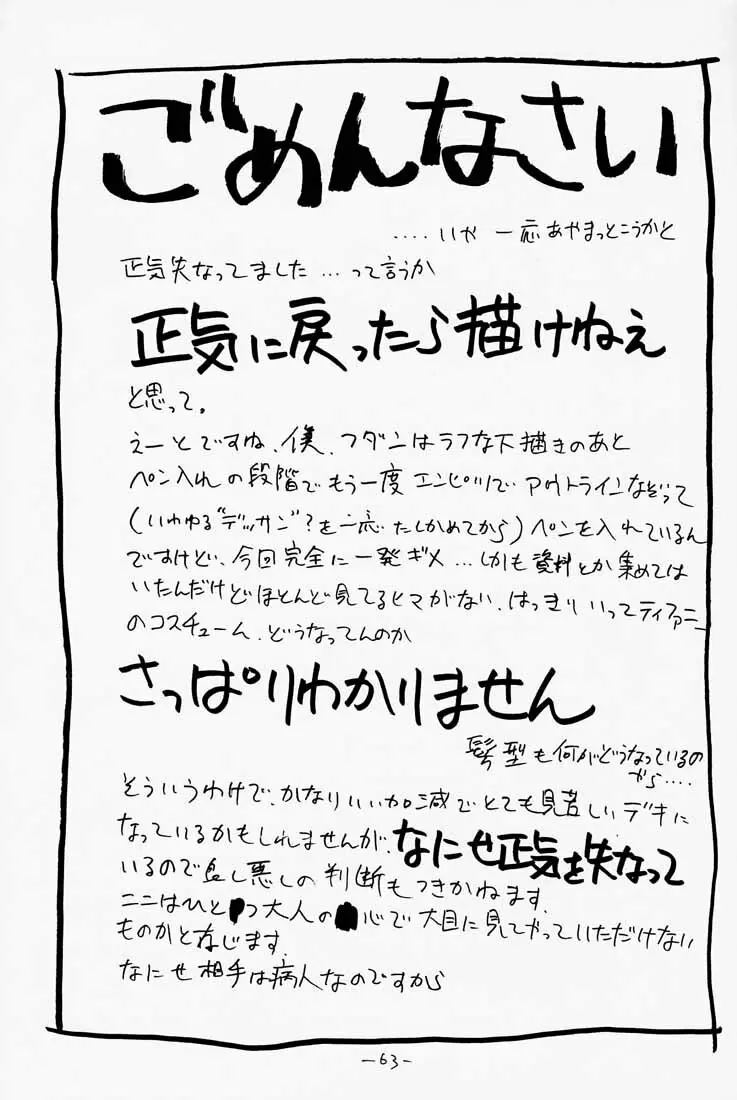 ごめんなさい
....いや 一応あやまっとこうかと
正気失なってました...って言うか
正気に戻ったら描けねぇ
と思って。
えーとですね、僕、フダンはラフな下描きのあと
ペン入れの段階でもう一度エンピツで アウトラインなぞって
(いわゆる"デッサン"?を一応たしかめてから)ペンを入れているん
ですけど、今回完全に一発ギメ...しかも資料とか集めては
いたんだけどほとんど見てるヒマがない、はっきりいってティファニー
のコスチューム、どうなってんのか
さっぱりわかりません
髪型も何がどうなっているの
やら....
そういうわけで、かなりいい加減でとても見苦しいデキに
なっているかもしれませんが、なにせ正気を失なって
いるので良し悪しの判断もつきかねます.
ここはひとつ大人の心で大目に見てやっていただけない
ものかと存じます.
なにせ相手は病人なのですから
-63-